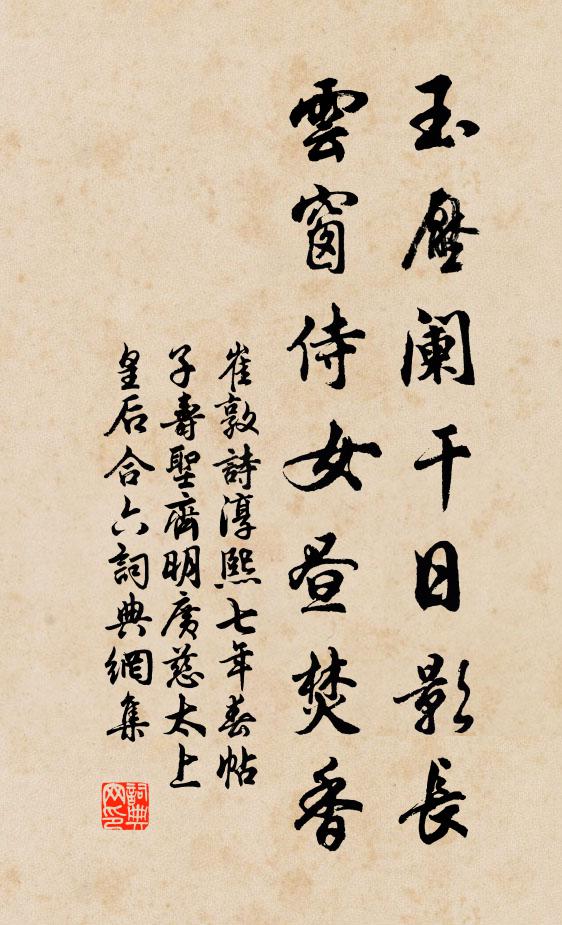 玉壓闌干日影長
雲窗侍女昼焚香
崔敦詩淳熙七年春帖
子壽聖齊明廣慈太上
皇后合六詞典網集
詞典
网印